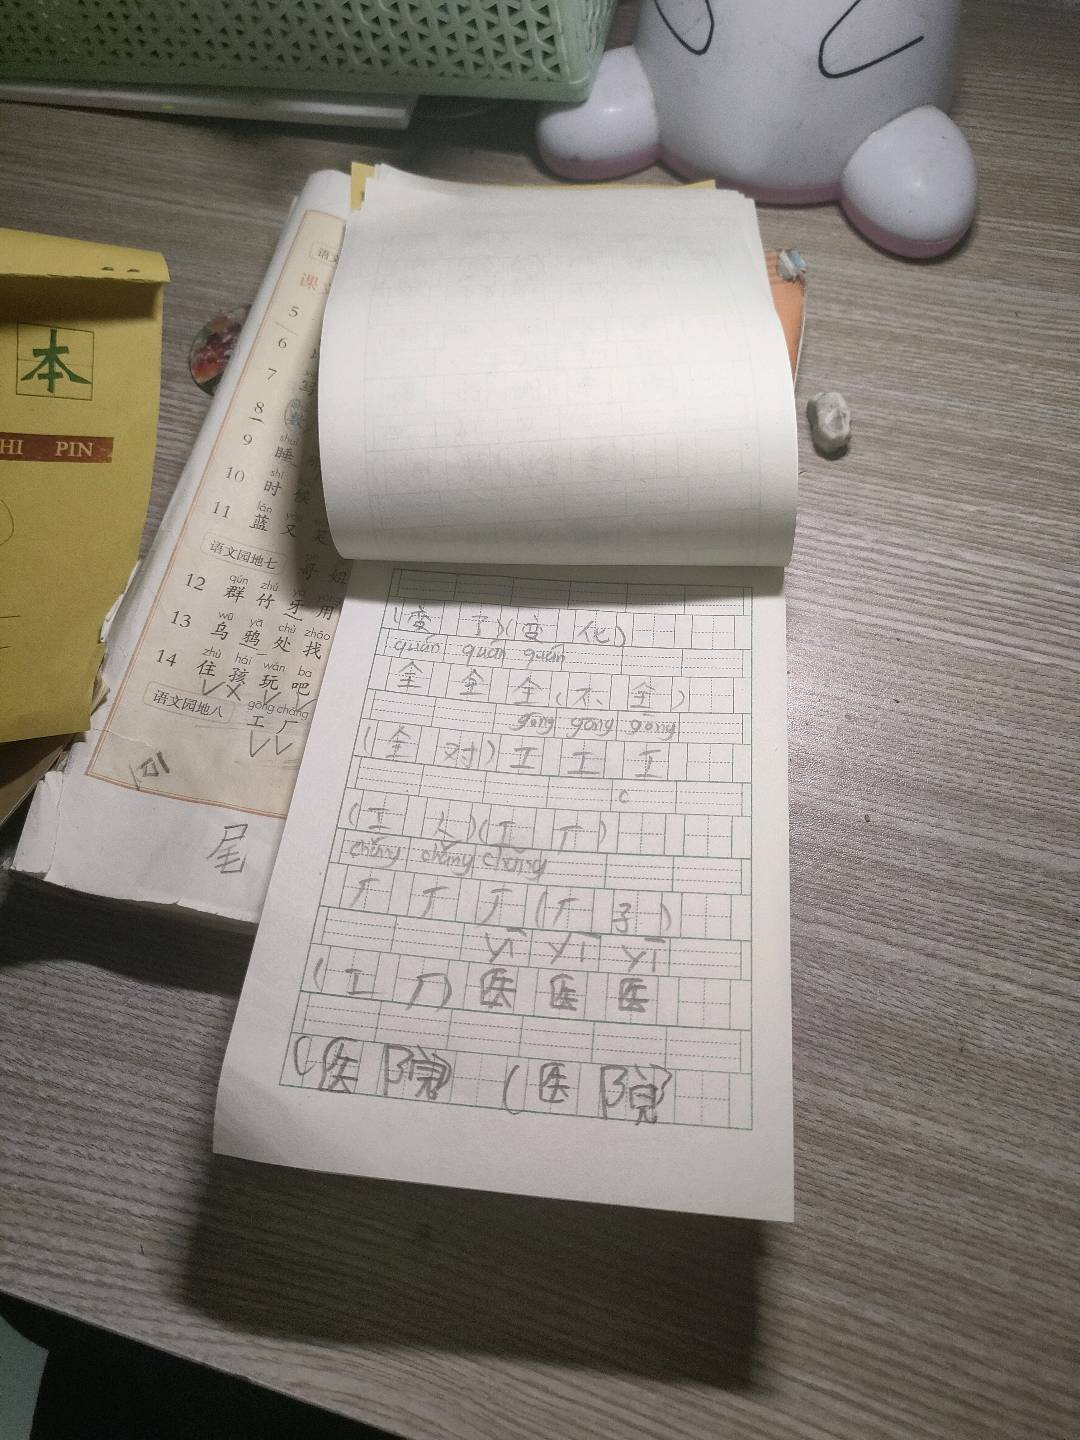 本
HI PIN
语文
课文
5
6
7
8
9 shuì
睡
10 shí
时候
11 lán
蓝又笑
语文园地七
哥姐
12 qún zhú yá
群竹牙用
13 wū yā chǔ zhǎo
乌鸦处找
14 zhù hái wán ba
住孩玩吧
语文园地八
gōng chǎng
工厂
尾
(变 个)(变 化)
quán quán quán
全 全 全 (不 全)
gōng gōng gōng
(全 对) 工 工 工
c
(工 人)(工 厂)
chǎng chǎng chǎng
厂 厂 厂 (厂 子)
yī yī yī
(工 厂) 医 医 医
(医 院) (医 院